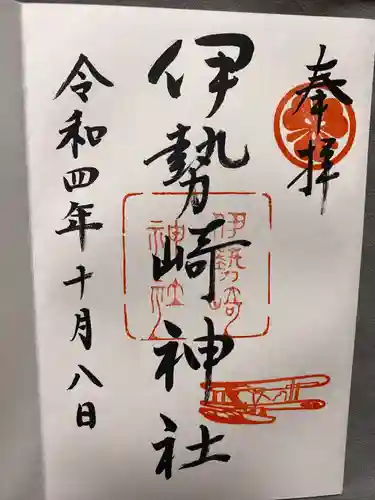 奉拝
伊勢崎神社
伊勢崎
神社
令和四年十月八日